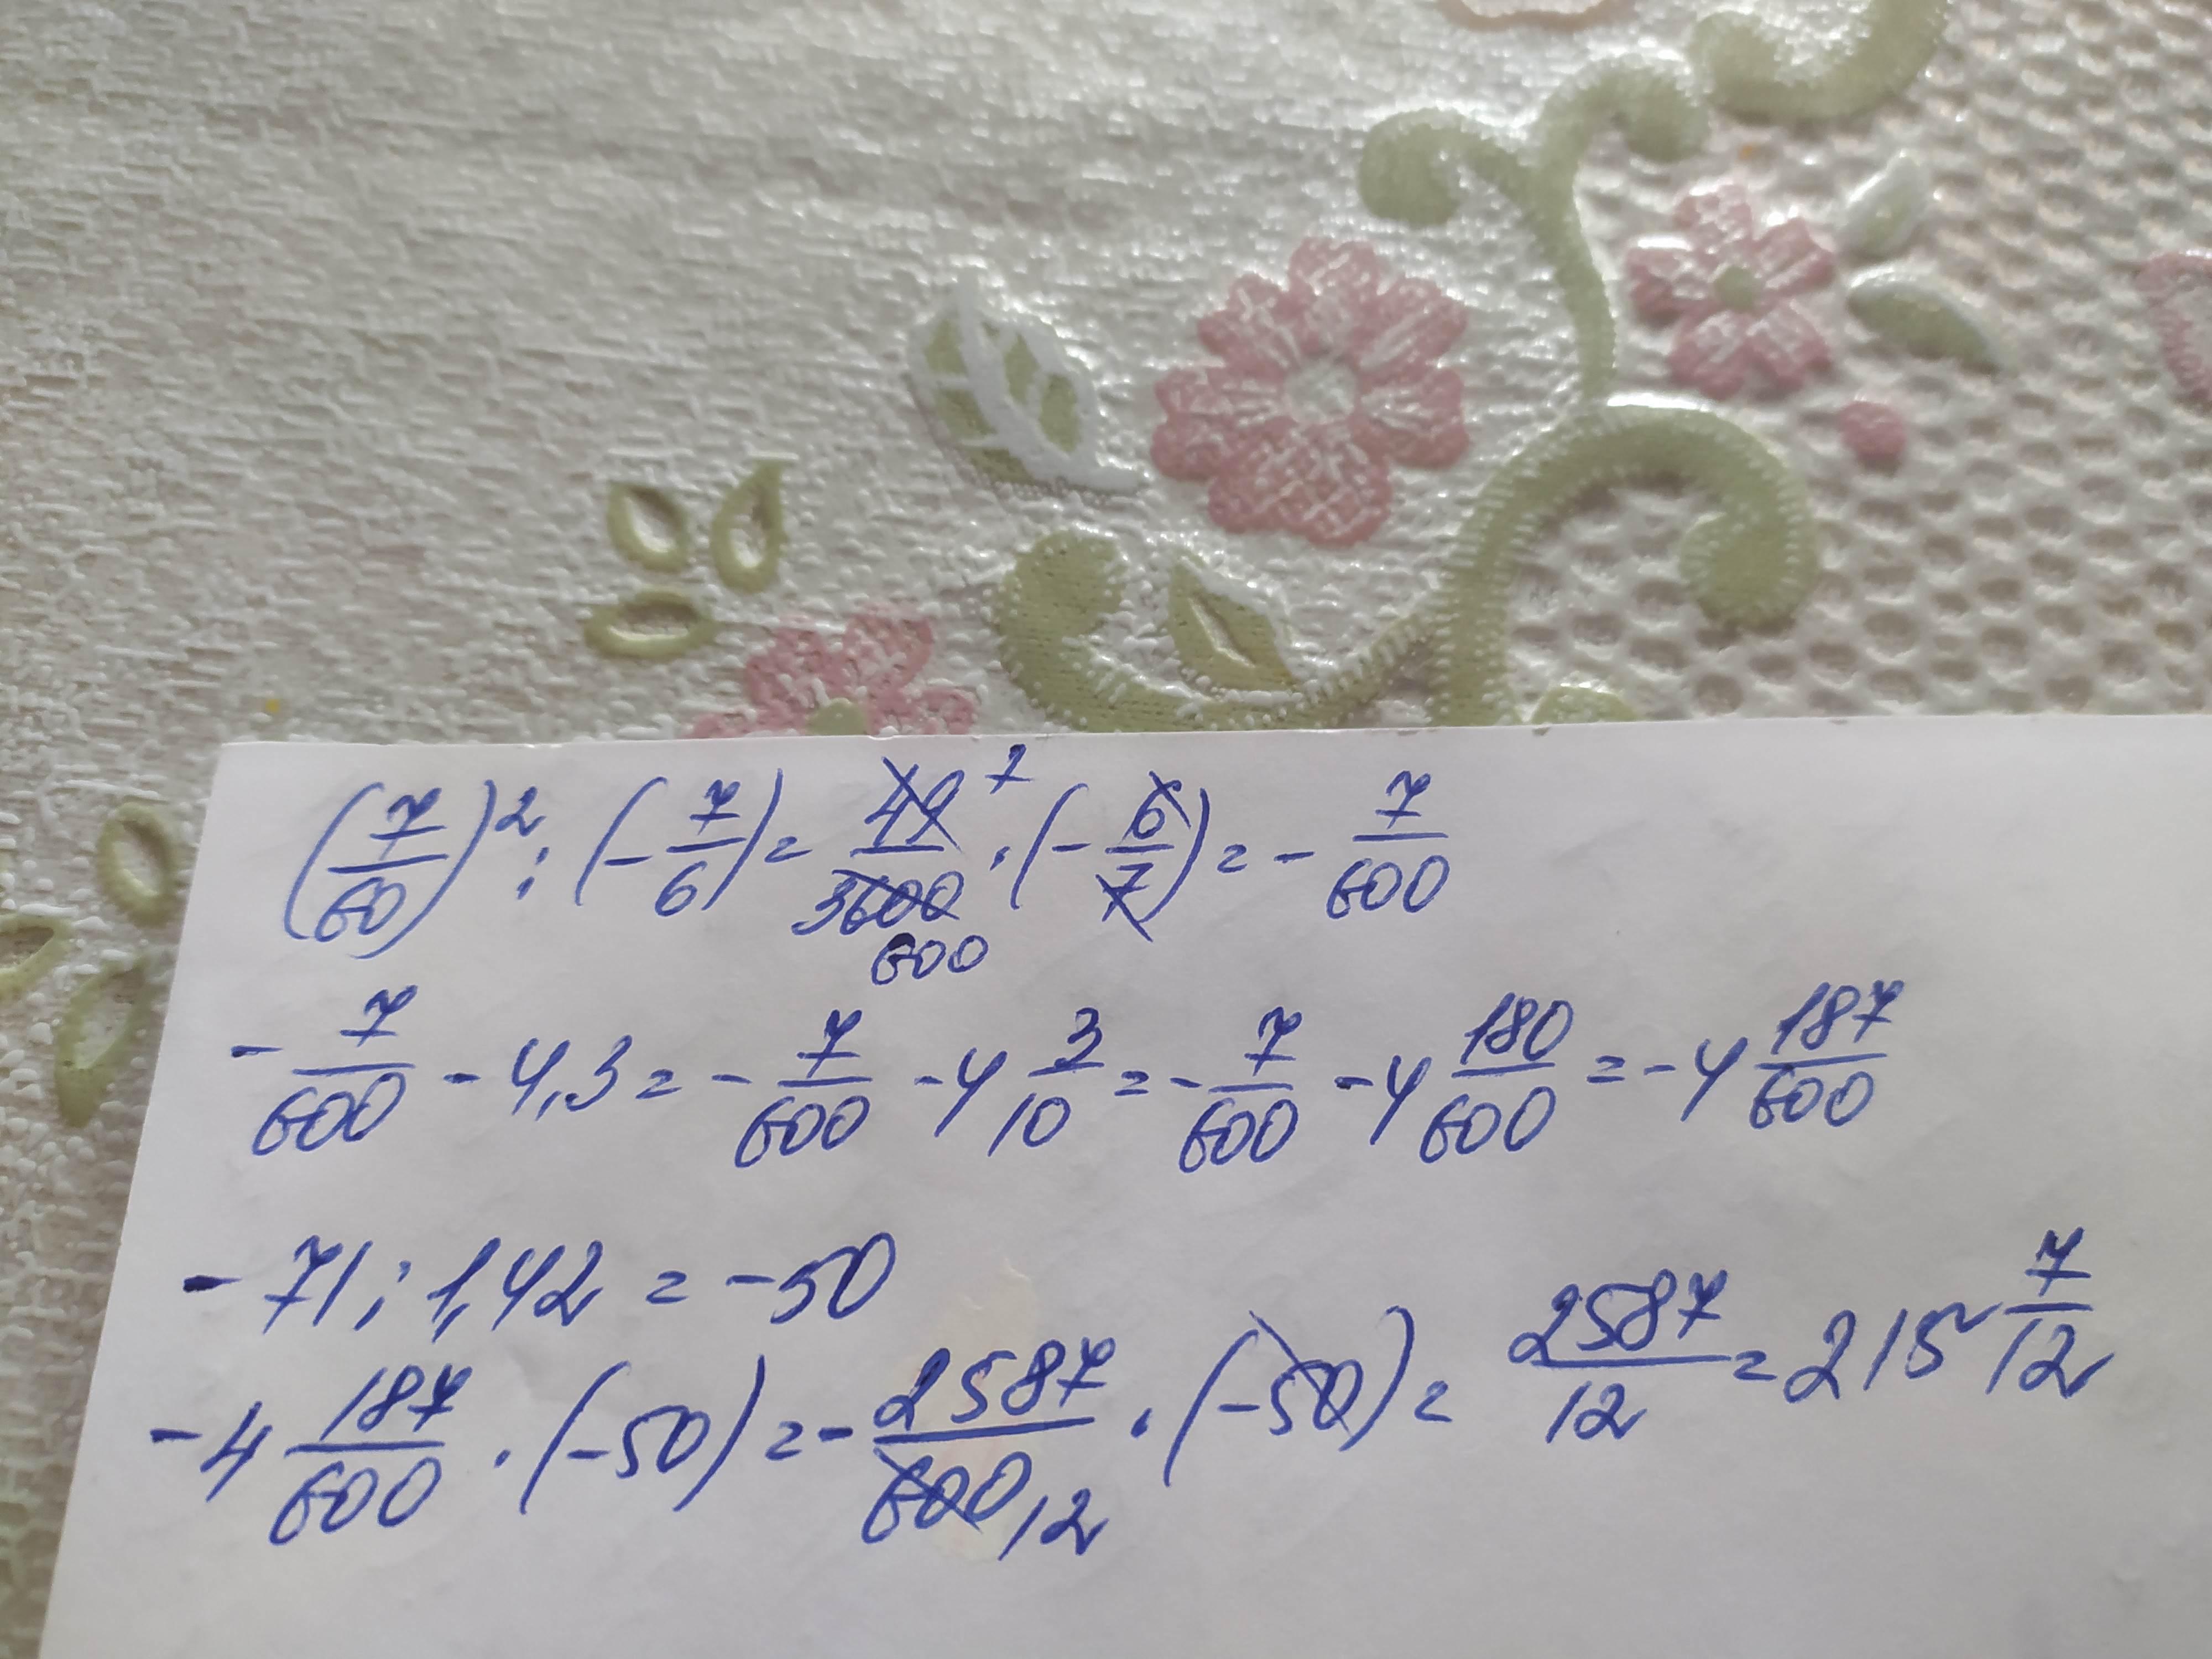 (7/60)² : (-7/6) = 49 7/3600 600 · (-6/7) = -7/600
-7/600 - 4,3 = -7/600 - 4 3/10 = -7/600 - 4 180/600 = -4 187/600
-71 : 1,42 = -50
-4 187/600 · (-50) = -2587/600 12 · (-50) = 2587/12 = 215 7/12